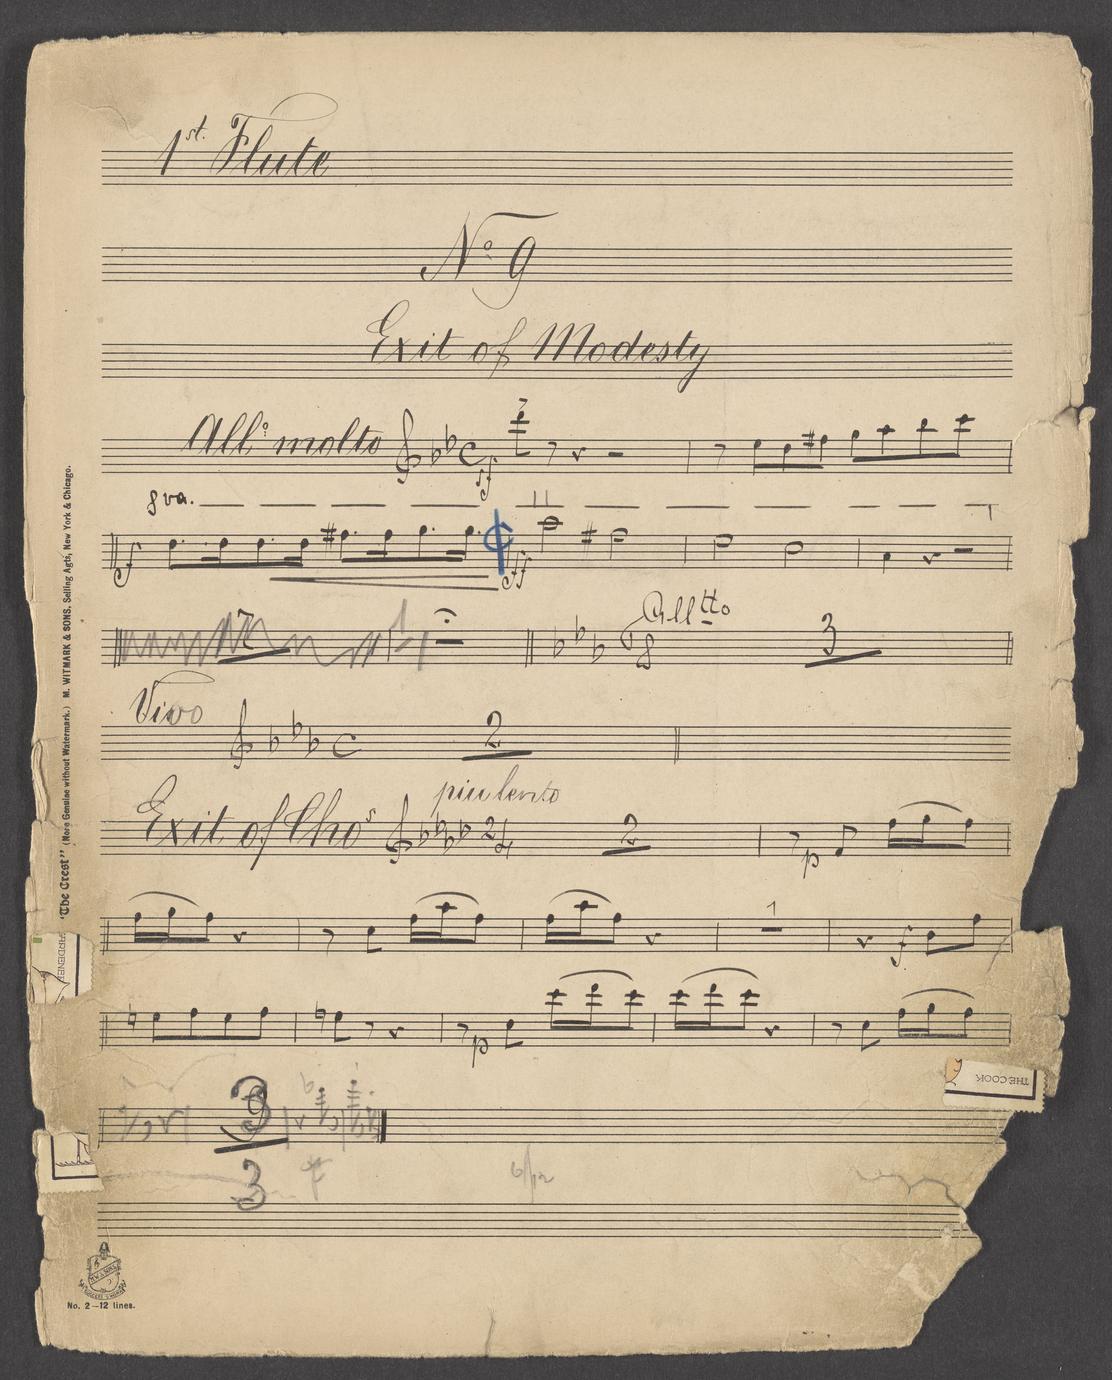 1st. Flute
No 9
Exit of Modesty
Allo molto
sf
8va.
f
ff
7
1
Alltto
6
8
3
Vivo
2
piu lento
Exit of Chos
2/4
2
p
1
f
p
THE COOK
3
3
6/12
"The Crest" (None Genuine without Watermark.) M. WITMARK & SONS, Selling Agts, New York & Chicago.
No. 2—12 lines.